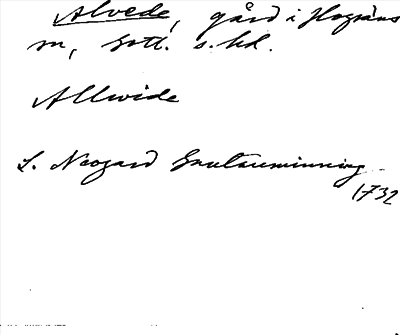 Alvede, gård i Hogräns
sn, Gotl. s. hd.
Allwide
L. Neogard Gautauminning
1732